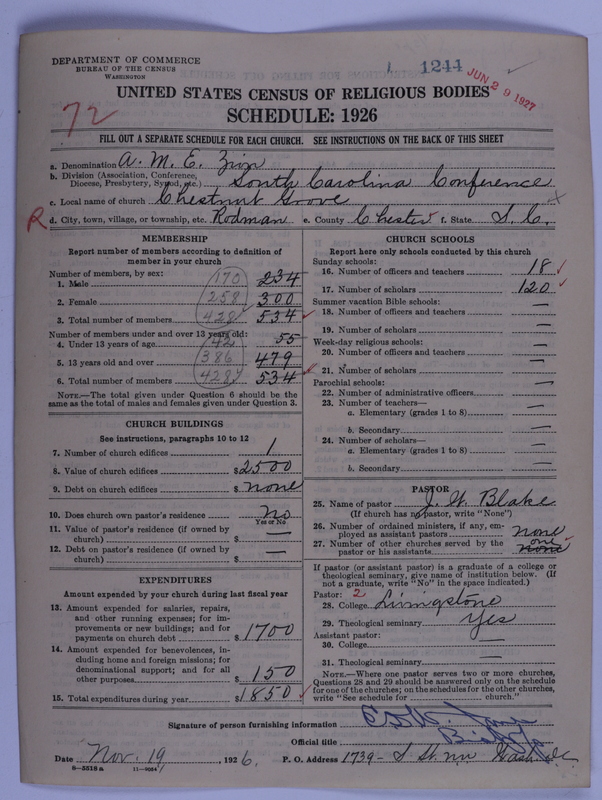 DEPARTMENT OF COMMERCE
BUREAU OF THE CENSUS
WASHINGTON
1244
JUN 29 1927
UNITED STATES CENSUS OF RELIGIOUS BODIES
SCHEDULE: 1926
72
FILL OUT A SEPARATE SCHEDULE FOR EACH CHURCH. SEE INSTRUCTIONS ON THE BACK OF THIS SHEET
a. Denomination A. M. E. Zion
b. Division (Association, Conference, Diocese, Presbytery, Synod, etc.) South Carolina Conference
c. Local name of church Chestnut Grove
R d. City, town, village, or township, etc. Rodman e. County Chester f. State S. C.
MEMBERSHIP
Report number of members according to definition of member in your church
Number of members, by sex:
1. Male 170 234
2. Female 258 300
3. Total number of members 428 534
Number of members under and over 13 years old:
4. Under 13 years of age 42 55
5. 13 years old and over 386 479
6. Total number of members 428 534
NOTE.—The total given under Question 6 should be the same as the total of males and females given under Question 3.
CHURCH BUILDINGS
See instructions, paragraphs 10 to 12
7. Number of church edifices 1
8. Value of church edifices $2500
9. Debt on church edifices $ none
10. Does church own pastor's residence No
Yes or No
11. Value of pastor's residence (if owned by church) $ —
12. Debt on pastor's residence (if owned by church) $ —
EXPENDITURES
Amount expended by your church during last fiscal year
13. Amount expended for salaries, repairs, and other running expenses; for improvements or new buildings; and for payments on church debt $1700
14. Amount expended for benevolences, including home and foreign missions; for denominational support; and for all other purposes $150
15. Total expenditures during year $1850
CHURCH SCHOOLS
Report here only schools conducted by this church
Sunday schools:
16. Number of officers and teachers 18
17. Number of scholars 120
Summer vacation Bible schools:
18. Number of officers and teachers —
19. Number of scholars —
Week-day religious schools:
20. Number of officers and teachers —
21. Number of scholars —
Parochial schools:
22. Number of administrative officers —
23. Number of teachers—
a. Elementary (grades 1 to 8) —
b. Secondary —
24. Number of scholars—
a. Elementary (grades 1 to 8) —
b. Secondary —
PASTOR
25. Name of pastor J. W. Blake
(If church has no pastor, write "None")
26. Number of ordained ministers, if any, employed as assistant pastors none
27. Number of other churches served by the pastor or his assistants one none
If pastor (or assistant pastor) is a graduate of a college or theological seminary, give name of institution below. (If not a graduate, write "No" in the space indicated.)
Pastor: 2
28. College Livingstone
29. Theological seminary Yes
Assistant pastor:
30. College —
31. Theological seminary —
NOTE.—Where one pastor serves two or more churches, Questions 28 and 29 should be answered only on the schedule for one of the churches; on the schedules for the other churches, write "See schedule for church."
Signature of person furnishing information Jones
Official title Bishop
Date Nov. 19, 1926. P. O. Address 1739- S St. NW Wash DC
8—5518a 11—9024